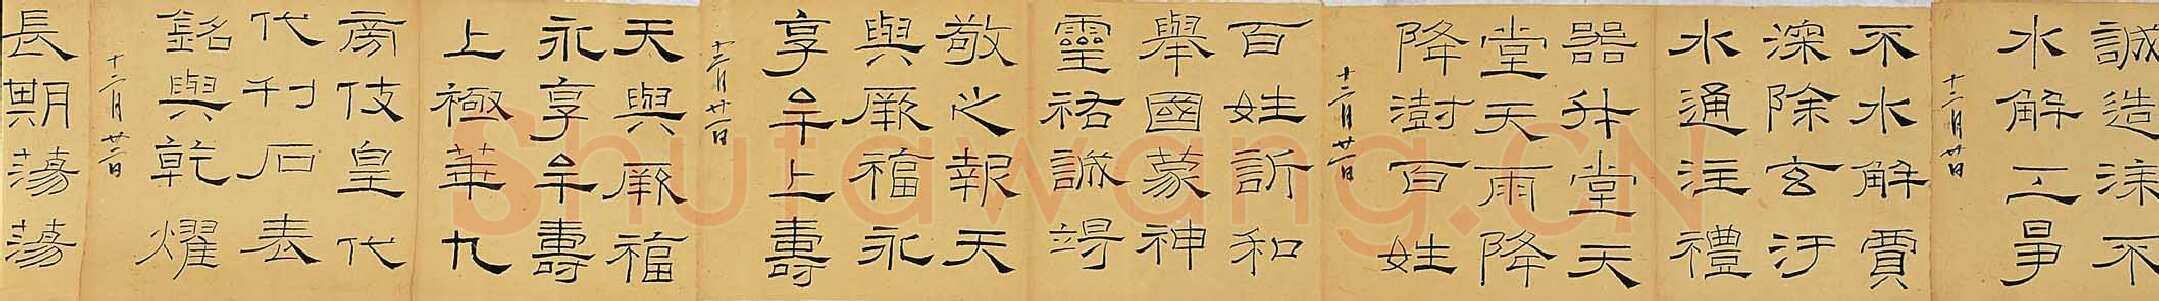 誠造涑不
水解工
十二月廿日
不水解賈
深除玄汙
水通注禮
器升堂天
堂天雨降
降澍百姓
十二月廿一日
百姓訢和
舉國蒙神
靈祐誠竭
敬之報天
與厥福永
享牟上壽
十二月廿二日
天與厥福
永享牟壽
上極華九
旁伎皇代
代刊石表
銘與乾燿
十二月廿三日
長期蕩蕩
Shufawang.CN